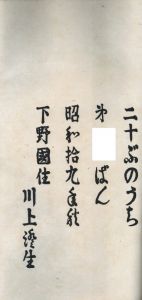 二十ぶのうち
第 ばん
昭和拾九年秋
下野國住
川上澄生